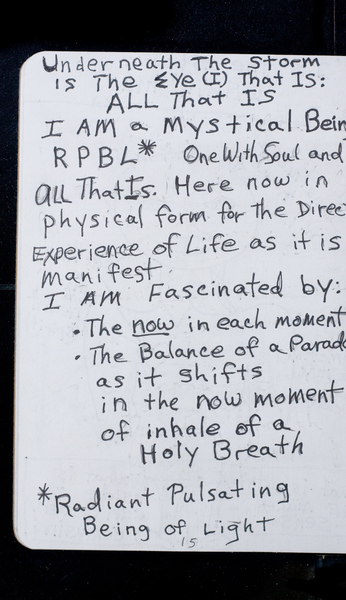 Underneath The Storm
is The Eye (I) That Is:
ALL That IS
I AM a Mystical Bein
RPBL* One With Soul and
all That Is. Here now in
physical form for the Direc
Experience of Life as it is
manifest.
I AM Fascinated by:
• The now in each moment
• The Balance of a Parad
as it shifts
in the now moment
of inhale of a
Holy Breath
*Radiant Pulsating
Being of Light
15